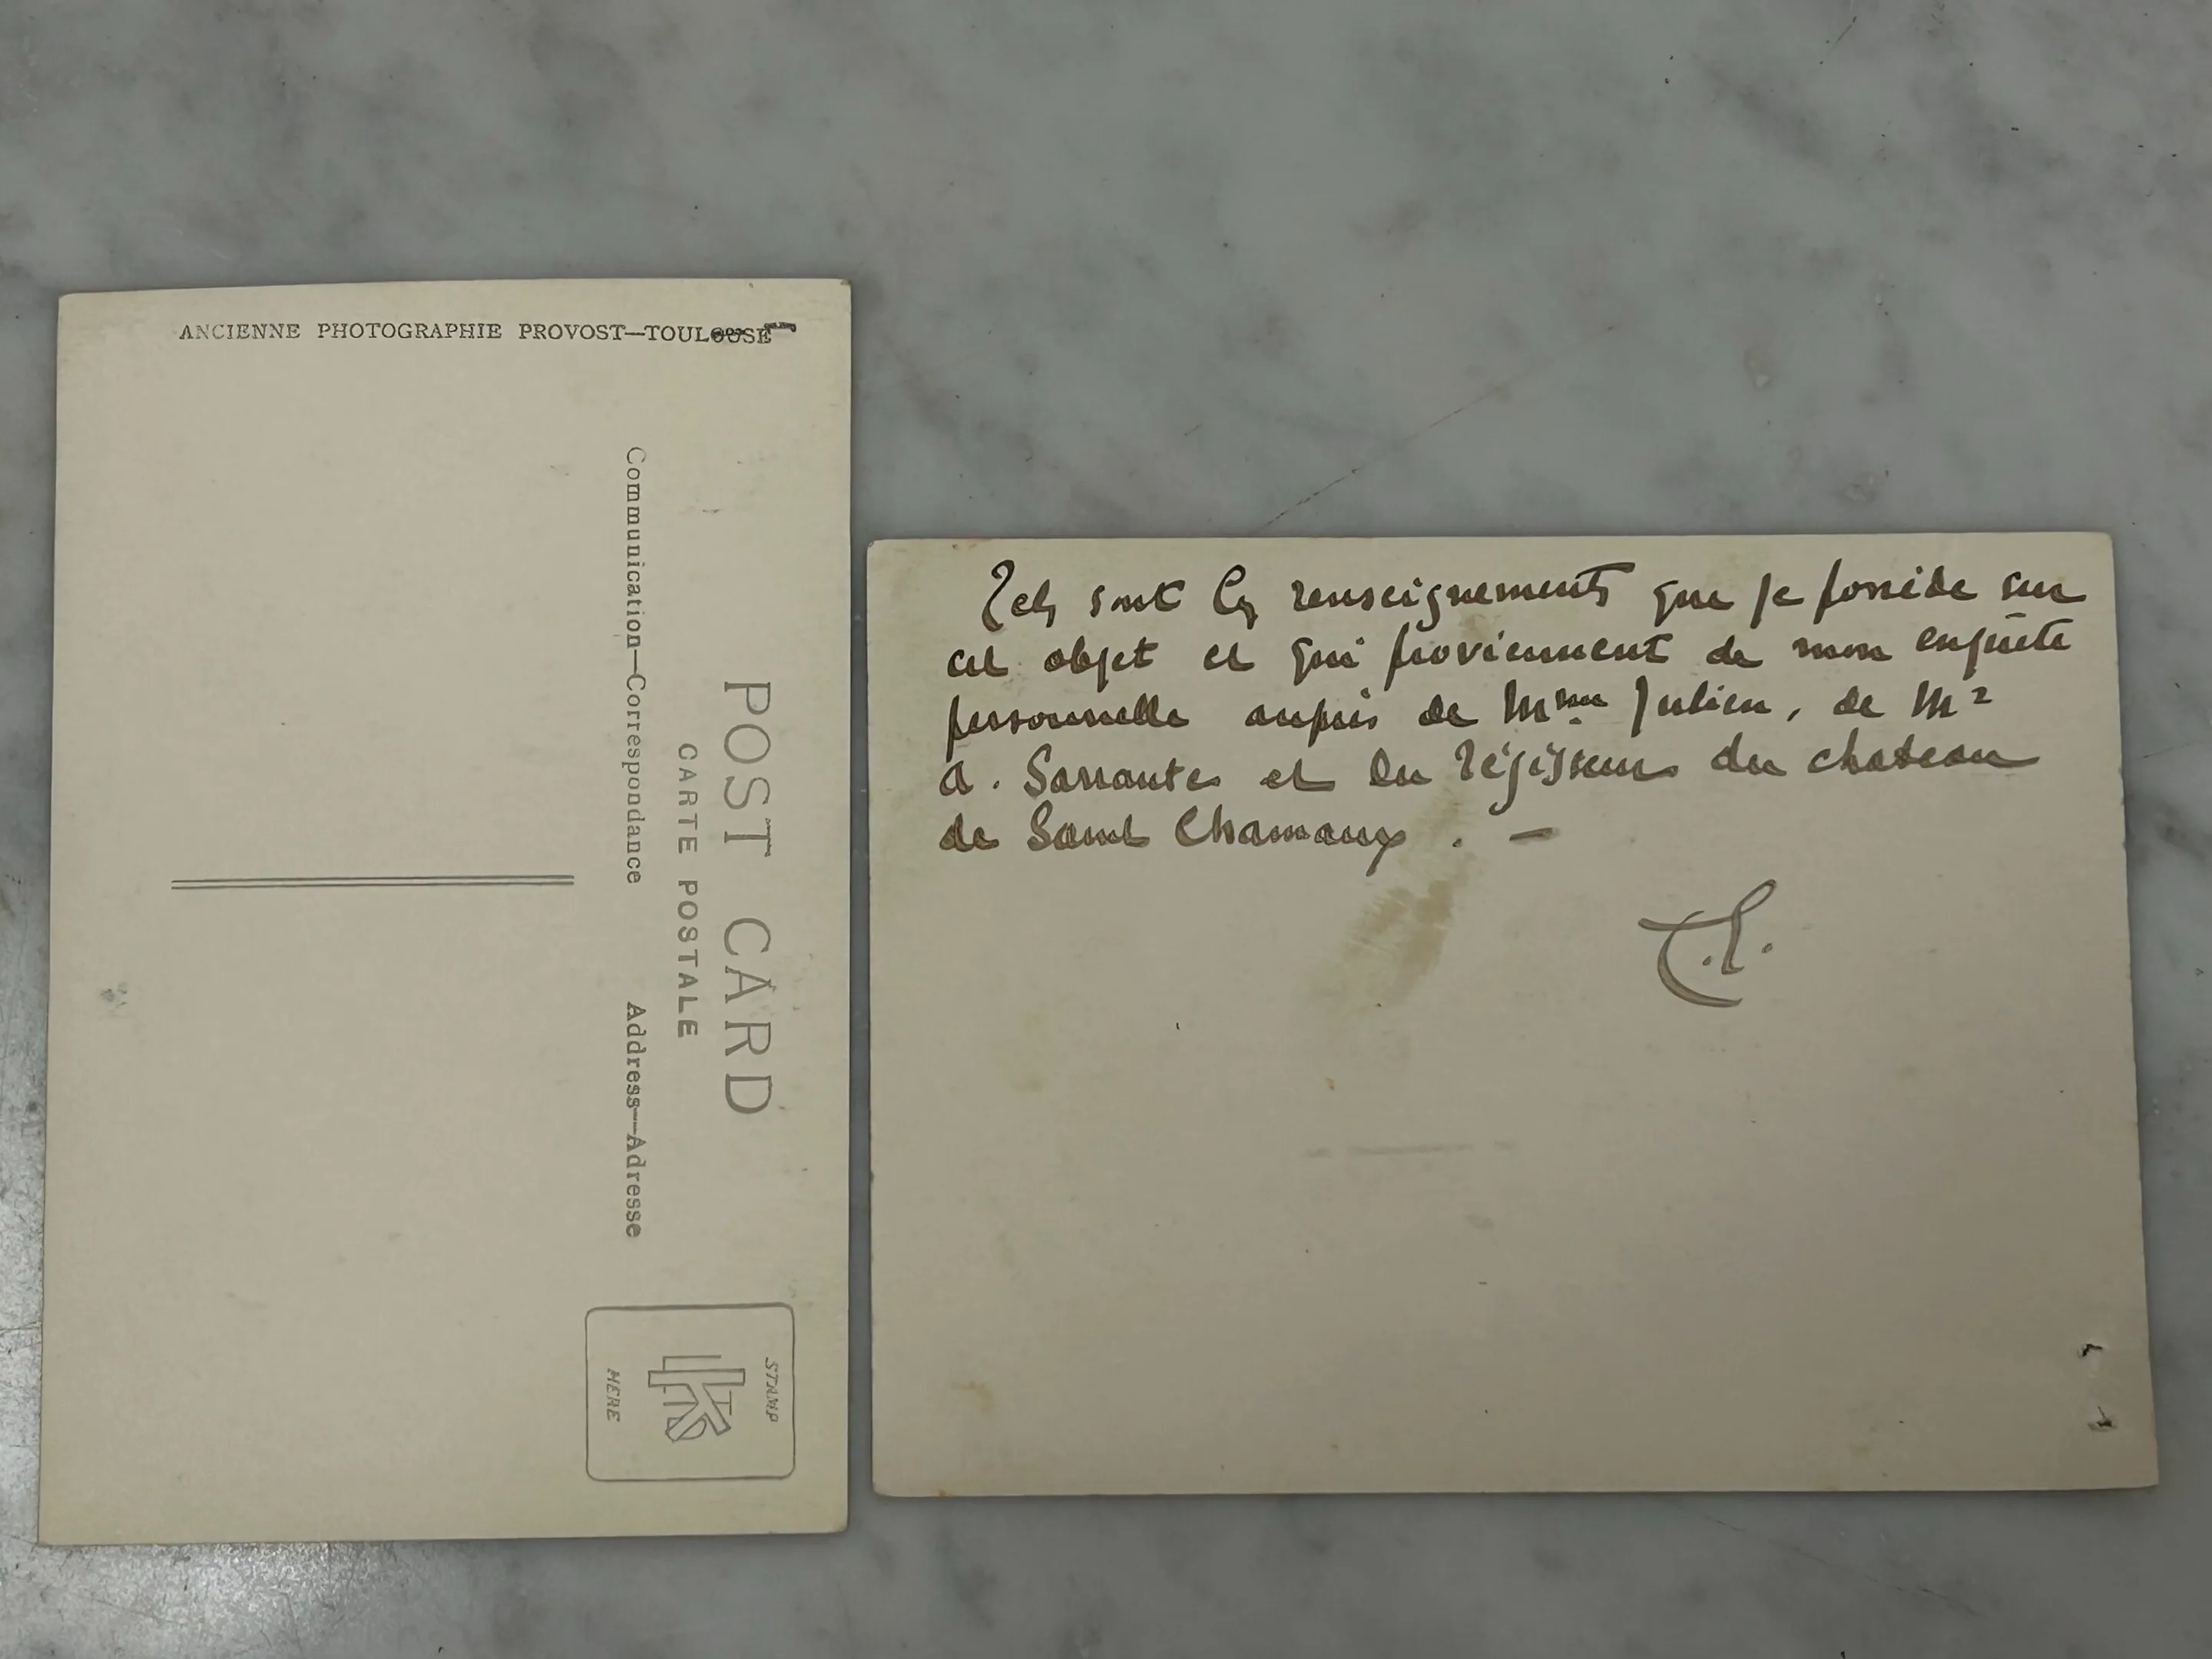 ANCIENNE PHOTOGRAPHIE PROVOST—TOULOUSE
POST CARD
CARTE POSTALE
Communication—Correspondance
Address—Adresse
STAMP
HERE
Tels sont les renseignements que je possède sur
cet objet et qui proviennent de mon enquête
personnelle auprès de Mme Julien, de Mr
A. Sarrante et du régisseur du chateau
de Saint Chamaux . —